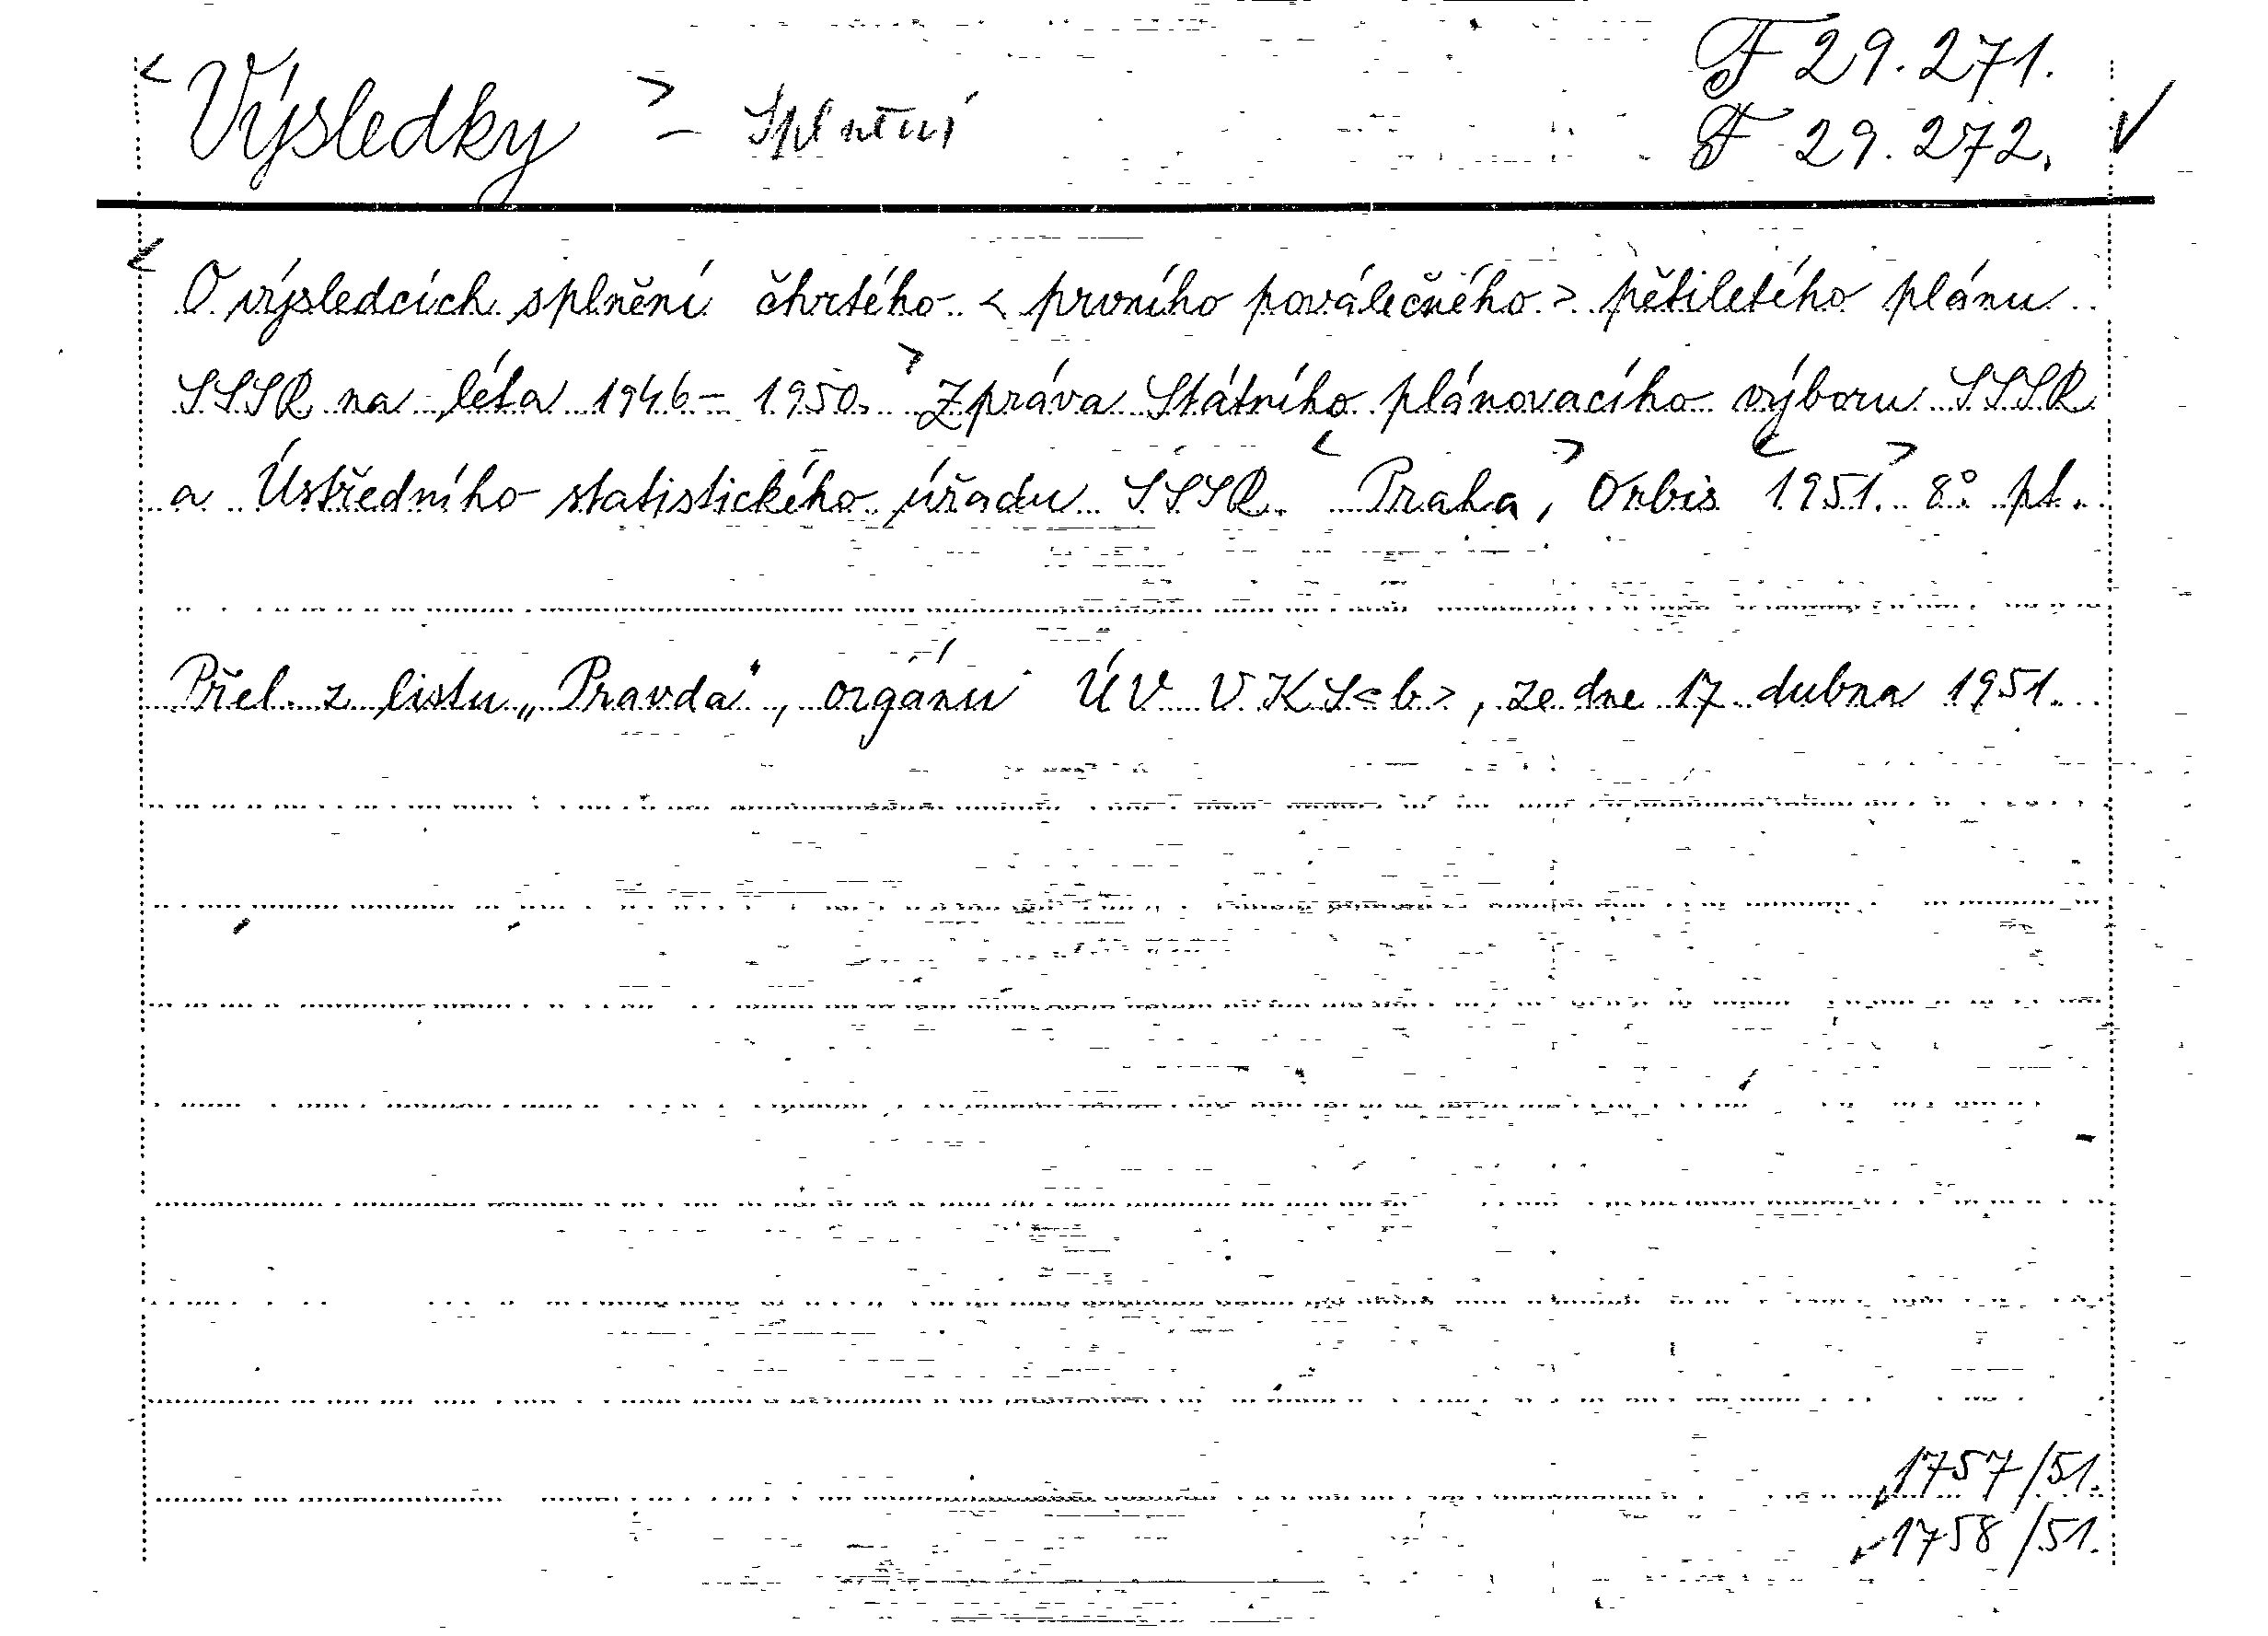 < Výsledky > - Splnění F 29.271.
F 29.272. ✓
< O výsledcích splnění čtvrtého < prvního poválečného > pětiletého plánu
SSSR na léta 1946 - 1950. > Zpráva Státního plánovacího výboru SSSR
a Ústředního statistického úřadu SSSR. < Praha, > Orbis < 1951. > 8° pt.
Přel. z listu „Pravda", orgánu ÚV VKS<b>, ze dne 17 dubna 1951.
1757/51.
1758/51.